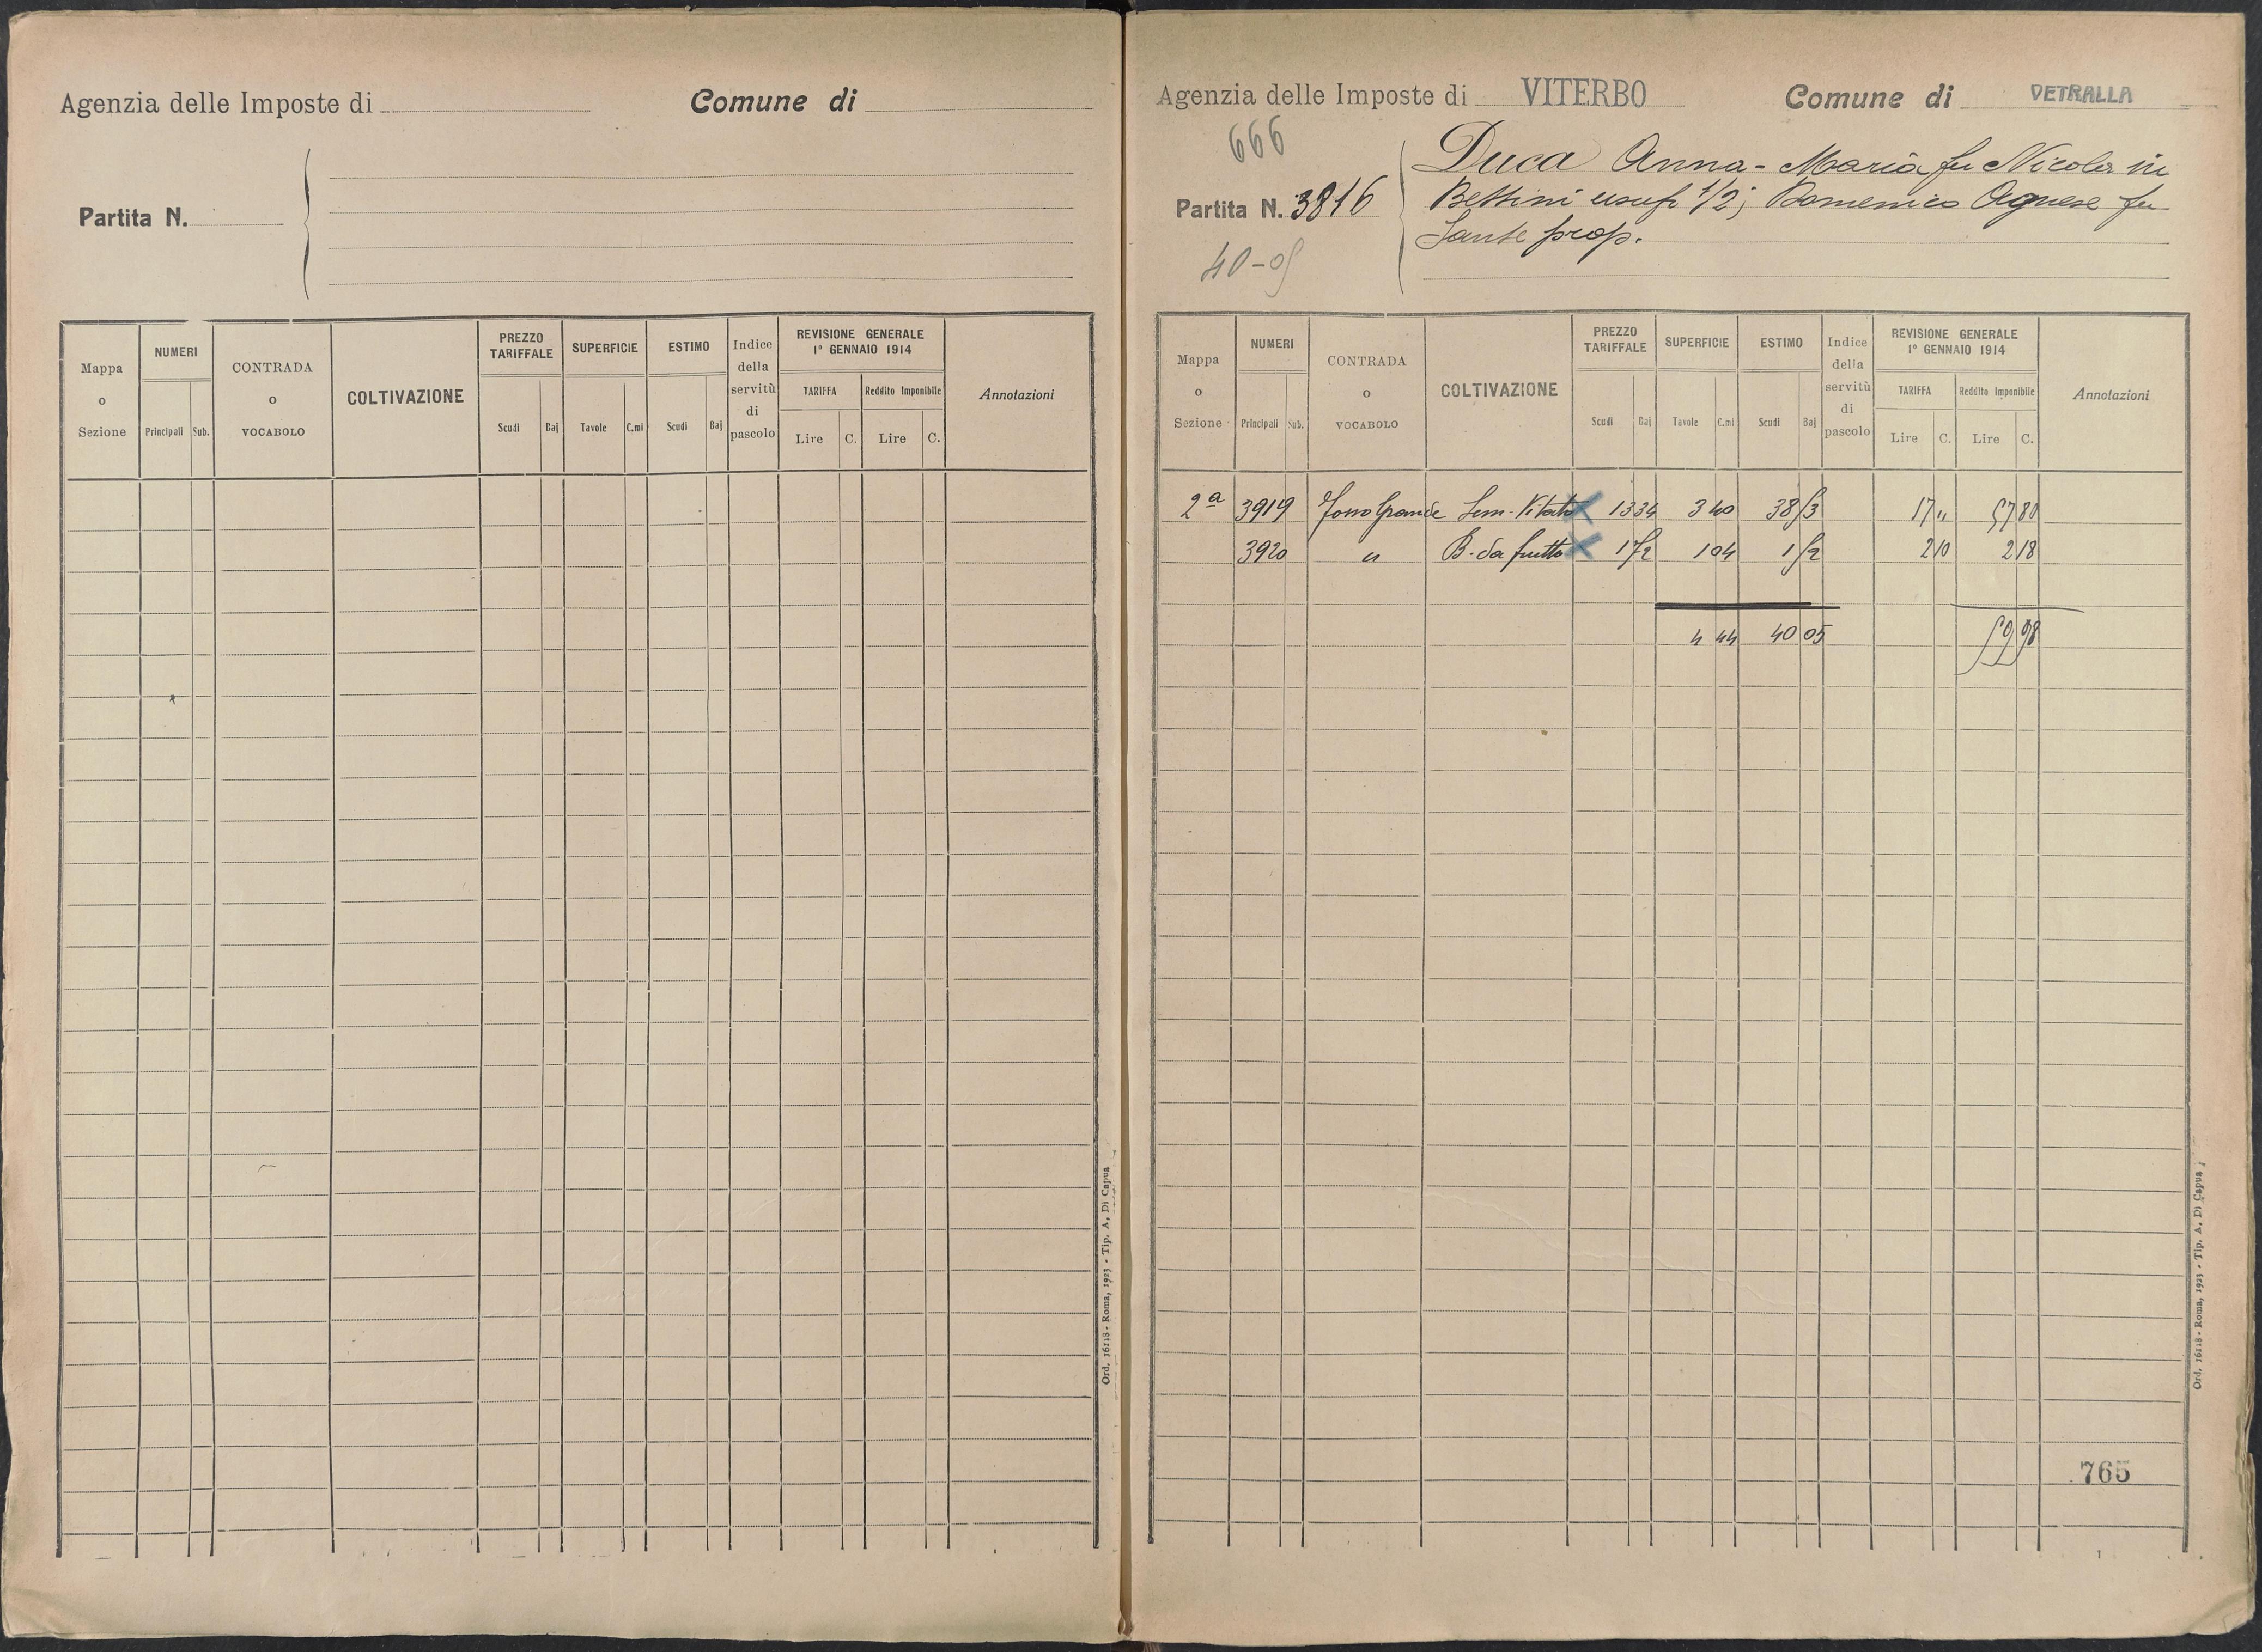 Agenzia delle Imposte di
Comune di
Partita N.
Mappa o Sezione
NUMERI
Principali Sub.
CONTRADA o VOCABOLO
COLTIVAZIONE
PREZZO TARIFFALE
Scudi Baj
SUPERFICIE
Tavole C.mi
ESTIMO
Scudi Baj
Indice della servitù di pascolo
REVISIONE GENERALE
1° GENNAIO 1914
TARIFFA Reddito Imponibile
Lire C. Lire C.
Annotazioni
Ord. 16118 - Roma, 1923 - Tip. A. Di Capua
Agenzia delle Imposte di VITERBO
Comune di VETRALLA
666
Partita N. 3816
40-05
Duca Anna-Maria fu Nicola in
Bettini usuf 1/2; Domenico Agnese fu
Sante prop.
Mappa o Sezione
NUMERI
Principali Sub.
CONTRADA o VOCABOLO
COLTIVAZIONE
PREZZO TARIFFALE
Scudi Baj
SUPERFICIE
Tavole C.mi
ESTIMO
Scudi Baj
Indice della servitù di pascolo
REVISIONE GENERALE
1° GENNAIO 1914
TARIFFA Reddito Imponibile
Lire C. Lire C.
Annotazioni
2ª 3919 Fosso Grande Sem-Vitato 1334 3 40 38 53 17 " 57 80
3920 " B. da frutto 1 52 1 04 1 52 2 10 2 18
4 44 40 05 59 98
765
Ord. 16118 - Roma, 1923 - Tip. A. Di Capua